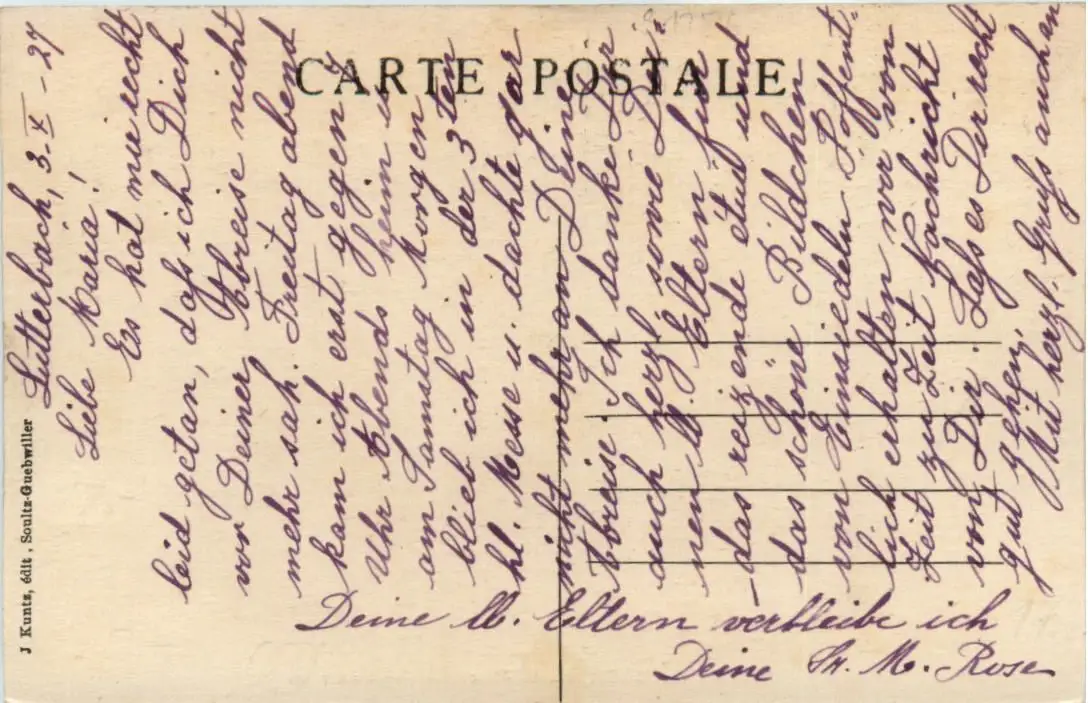 CARTE POSTALE
J Kuntz, édit., Soultz-Guebwiller
Lutterbach, 3. X - 27
Liebe Maria!
Es hat mir recht
leid getan, dass ich Dich
vor Deiner Abreise nicht
mehr sah. Freitag abend
kam ich erst gegen 7
Uhr Abends heim u.
am Samstag Morgen
blieb ich in der 3ten
hl. Messe u. dachte gar
nicht mehr an Deine
Abreise. Ich danke Dir
auch herzl. sowie Dei-
nen lb. Eltern für
das reizende Etui und
das schöne Bildchen
von Einsiedeln. Hoffent-
lich erhalten wir von
Zeit zu Zeit Nachricht
von Dir. Lass es Dir recht
gut gehen,
Mit herzl. Gruss auch an
Deine lb. Eltern verbleibe ich
Deine Sr. M. Rose